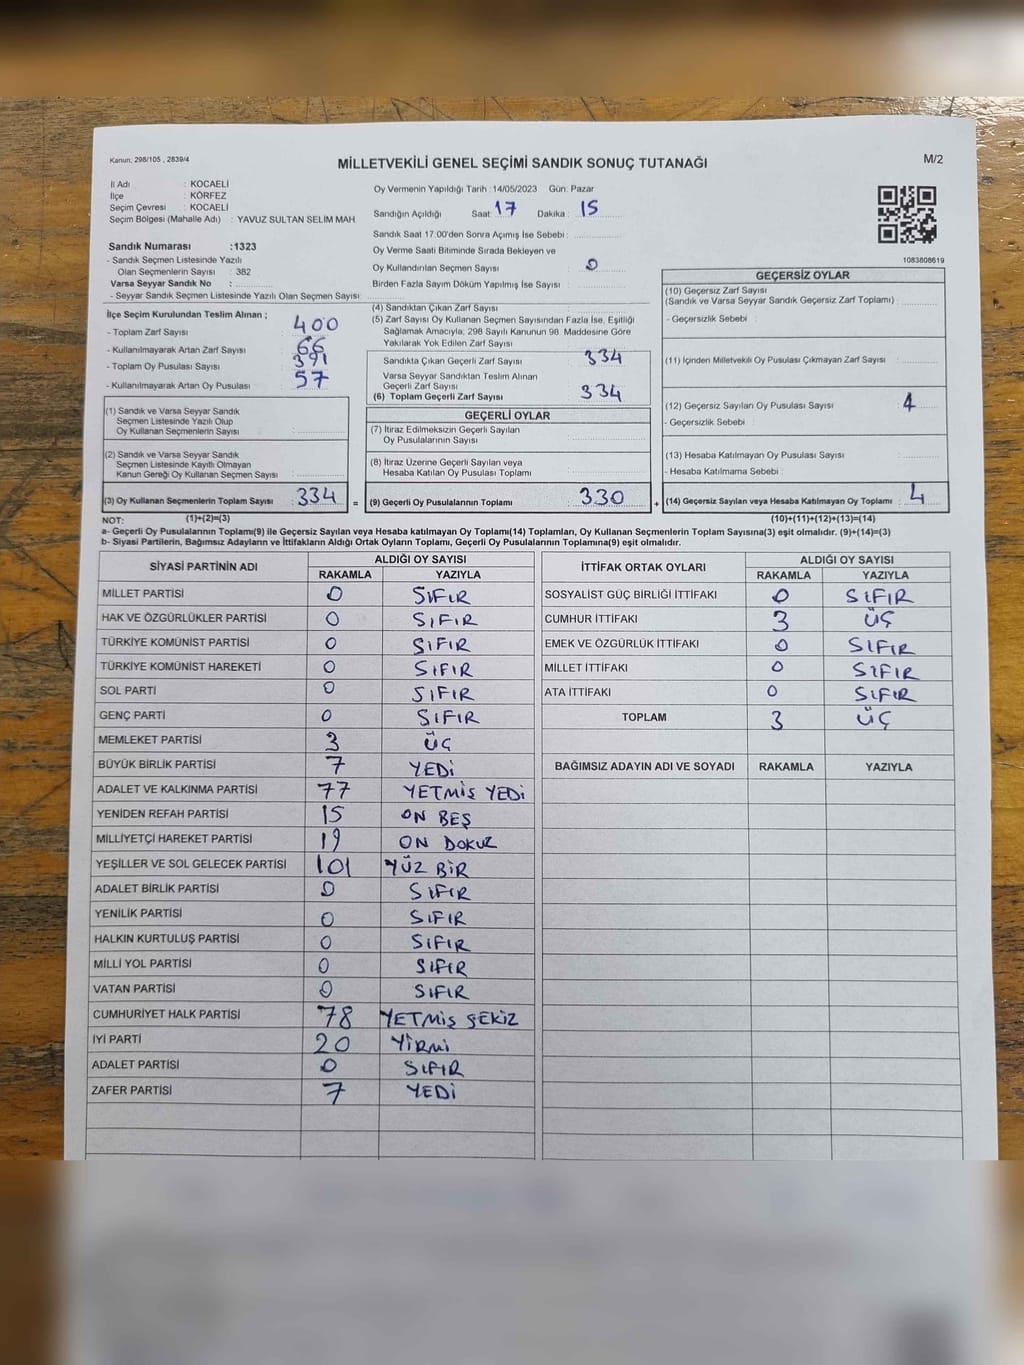 Kanun; 298/105 , 2839/4
MİLLETVEKİLİ GENEL SEÇİMİ SANDIK SONUÇ TUTANAĞI
M/2
İl Adı : KOCAELİ
İlçe : KÖRFEZ
Seçim Çevresi : KOCAELİ
Seçim Bölgesi (Mahalle Adı) : YAVUZ SULTAN SELİM MAH.
Oy Vermenin Yapıldığı Tarih : 14/05/2023 Gün: Pazar
Sandığın Açıldığı Saat: 17 Dakika : 15
Sandık Saat 17:00'den Sonra Açımış İse Sebebi :
Oy Verme Saati Bitiminde Sırada Bekleyen ve
Oy Kullandırılan Seçmen Sayısı : 0
Birden Fazla Sayım Döküm Yapılmış İse Sayısı :
1083808619
Sandık Numarası :1323
- Sandık Seçmen Listesinde Yazılı
Olan Seçmenlerin Sayısı : 382
Varsa Seyyar Sandık No :
- Seyyar Sandık Seçmen Listesinde Yazılı Olan Seçmen Sayısı:
İlçe Seçim Kurulundan Teslim Alınan ;
- Toplam Zarf Sayısı : 400
- Kullanılmayarak Artan Zarf Sayısı : 66
- Toplam Oy Pusulası Sayısı : 391
- Kullanılmayarak Artan Oy Pusulası : 57
(1) Sandık ve Varsa Seyyar Sandık
Seçmen Listesinde Yazılı Olup
Oy Kullanan Seçmenlerin Sayısı :
(2) Sandık ve Varsa Seyyar Sandık
Seçmen Listesinde Kayıtlı Olmayan
Kanun Gereği Oy Kullanan Seçmen Sayısı :
(3) Oy Kullanan Seçmenlerin Toplam Sayısı : 334 =
(1)+(2)=(3)
(4) Sandıktan Çıkan Zarf Sayısı :
(5) Zarf Sayısı Oy Kullanan Seçmen Sayısından Fazla İse, Eşitliği
Sağlamak Amacıyla, 298 Sayılı Kanunun 98. Maddesine Göre
Yakılarak Yok Edilen Zarf Sayısı :
Sandıkta Çıkan Geçerli Zarf Sayısı : 334
Varsa Seyyar Sandıktan Teslim Alınan
Geçerli Zarf Sayısı :
(6) Toplam Geçerli Zarf Sayısı : 334
GEÇERLİ OYLAR
(7) İtiraz Edilmeksizin Geçerli Sayılan
Oy Pusulalarının Sayısı :
(8) İtiraz Üzerine Geçerli Sayılan veya
Hesaba Katılan Oy Pusulası Toplamı :
(9) Geçerli Oy Pusulalarının Toplamı : 330 +
GEÇERSİZ OYLAR
(10) Geçersiz Zarf Sayısı
(Sandık ve Varsa Seyyar Sandık Geçersiz Zarf Toplamı) :
- Geçersizlik Sebebi :
(11) İçinden Milletvekili Oy Pusulası Çıkmayan Zarf Sayısı :
(12) Geçersiz Sayılan Oy Pusulası Sayısı : 4
- Geçersizlik Sebebi :
(13) Hesaba Katılmayan Oy Pusulası Sayısı :
- Hesaba Katılmama Sebebi :
(14) Geçersiz Sayılan veya Hesaba Katılmayan Oy Toplamı : 4
(10)+(11)+(12)+(13)=(14)
NOT:
a- Geçerli Oy Pusulalarının Toplamı(9) ile Geçersiz Sayılan veya Hesaba katılmayan Oy Toplamı(14) Toplamları, Oy Kullanan Seçmenlerin Toplam Sayısına(3) eşit olmalıdır. (9)+(14)=(3)
b- Siyasi Partilerin, Bağımsız Adayların ve İttifakların Aldığı Ortak Oyların Toplamı, Geçerli Oy Pusulalarının Toplamına(9) eşit olmalıdır.
SİYASİ PARTİNİN ADI ALDIĞI OY SAYISI
RAKAMLA YAZIYLA
MİLLET PARTİSİ 0 SIFIR
HAK VE ÖZGÜRLÜKLER PARTİSİ 0 SIFIR
TÜRKİYE KOMÜNİST PARTİSİ 0 SIFIR
TÜRKİYE KOMÜNİST HAREKETİ 0 SIFIR
SOL PARTİ 0 SIFIR
GENÇ PARTİ 0 SIFIR
MEMLEKET PARTİSİ 3 ÜÇ
BÜYÜK BİRLİK PARTİSİ 7 YEDİ
ADALET VE KALKINMA PARTİSİ 77 YETMİŞ YEDİ
YENİDEN REFAH PARTİSİ 15 ON BEŞ
MİLLİYETÇİ HAREKET PARTİSİ 19 ON DOKUZ
YEŞİLLER VE SOL GELECEK PARTİSİ 101 YÜZ BİR
ADALET BİRLİK PARTİSİ 0 SIFIR
YENİLİK PARTİSİ 0 SIFIR
HALKIN KURTULUŞ PARTİSİ 0 SIFIR
MİLLİ YOL PARTİSİ 0 SIFIR
VATAN PARTİSİ 0 SIFIR
CUMHURİYET HALK PARTİSİ 78 YETMİŞ SEKİZ
İYİ PARTİ 20 YİRMİ
ADALET PARTİSİ 0 SIFIR
ZAFER PARTİSİ 7 YEDİ
İTTİFAK ORTAK OYLARI ALDIĞI OY SAYISI
RAKAMLA YAZIYLA
SOSYALİST GÜÇ BİRLİĞİ İTTİFAKI 0 SIFIR
CUMHUR İTTİFAKI 3 ÜÇ
EMEK VE ÖZGÜRLÜK İTTİFAKI 0 SIFIR
MİLLET İTTİFAKI 0 SIFIR
ATA İTTİFAKI 0 SIFIR
TOPLAM 3 ÜÇ
BAĞIMSIZ ADAYIN ADI VE SOYADI RAKAMLA YAZIYLA